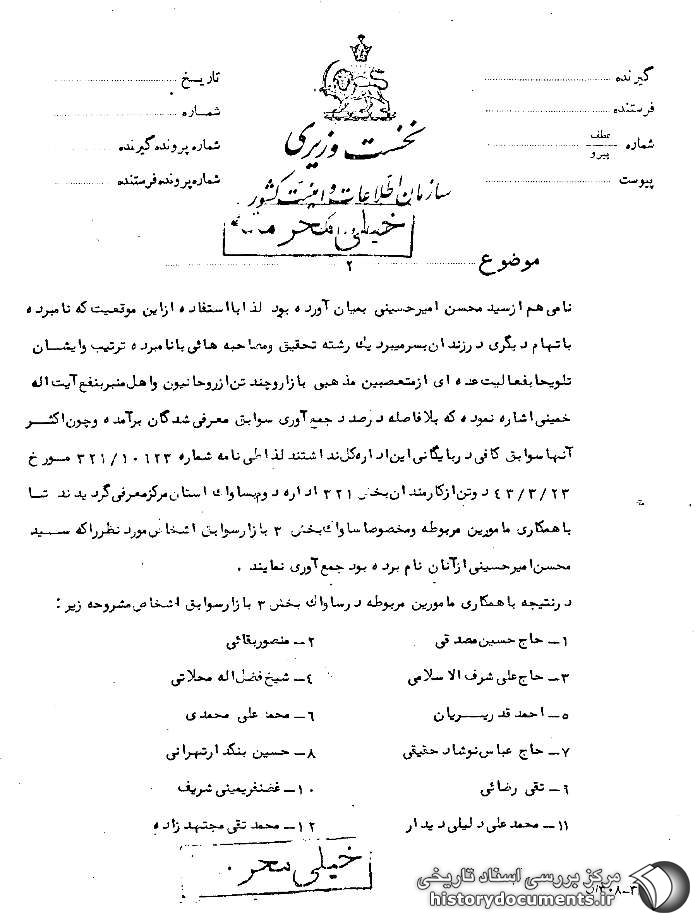 گیرنده
فرستنده
شماره عطف پیرو
پیوست
تاریخ
شماره
شماره پرونده گیرنده
شماره پرونده فرستنده
نخست وزیری
سازمان اطلاعات و امنیت کشور
خیلی محرمانه
موضوع
۲
نامی هم از سید محسن امیرحسینی بمیان آورده بود لذا با استفاده از این موقعیت که نامبرده
باتهام دیگری در زندان بسر میبرد یک رشته تحقیق و مصاحبه هائی با نامبرده ترتیب و ایشان
تلویحا بفعالیت عده ای از متعصبین مذهبی بازار و چند تن از روحانیون و اهل منبر بنفع آیت اله
خمینی اشاره نموده که بلافاصله درصدد جمع آوری سوابق معرفی شدگان برآمده و چون اکثر
آنها سوابق کافی در بایگانی این اداره کل نداشتند لذا طی نامه شماره ۳۲۱/۱۰۶۲۳ مورخ
۴۳/۳/۲۳ دو تن از کارمندان بخش ۳۲۱ اداره دوم بساواک استان مرکز معرفی گردیدند تا
با همکاری مامورین مربوطه و مخصوصا ساواک بخش ۳ بازار سوابق اشخاص مورد نظر را که سید
محسن امیرحسینی از آنان نام برده بود جمع آوری نمایند .
در نتیجه با همکاری مامورین مربوطه در ساواک بخش ۳ بازار سوابق اشخاص مشروحه زیر :
۱ـ حاج حسین مصدقی ۲ـ منصور بقائی
۳ـ حاج علی شرف الاسلامی ۴ـ شیخ فضل اله محلاتی
۵ـ احمد قدیریان ۶ـ محمد علی محمدی
۷ـ حاج عباس نوشاد حقیقی ۸ـ حسین بنکدار تهرانی
۹ـ تقی رضائی ۱۰ـ غضنفر یمینی شریف
۱۱ـ محمد علی دلیلی دیدار ۱۲ـ محمد تقی مجتهدزاده
خیلی محر
مرکز بررسی اسناد تاریخی
historydocuments.ir